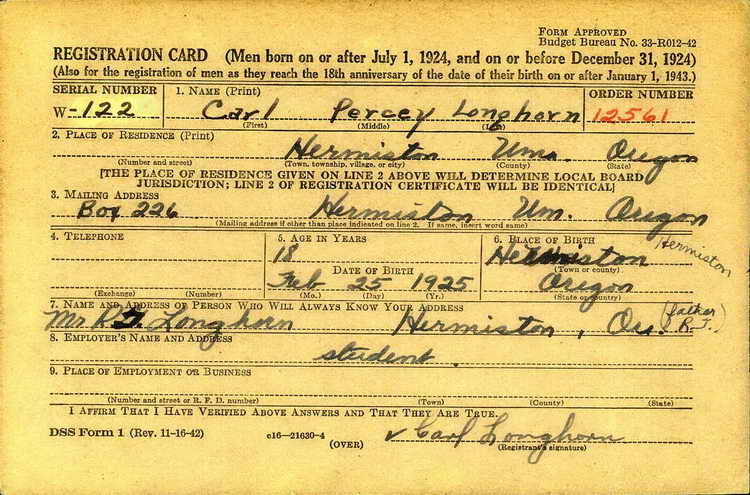 FORM APPROVED
Budget Bureau No. 33-R012-42
REGISTRATION CARD (Men born on or after July 1, 1924, and on or before December 31, 1924)
(Also for the registration of men as they reach the 18th anniversary of the date of their birth on or after January 1, 1943.)
SERIAL NUMBER 1. NAME (Print) ORDER NUMBER
W-122 Carl Percey Longhorn 12561
(First) (Middle) (Last)
2. PLACE OF RESIDENCE (Print)
Hermiston Uma. Oregon
(Number and street) (Town, township, village, or city) (County) (State)
[THE PLACE OF RESIDENCE GIVEN ON LINE 2 ABOVE WILL DETERMINE LOCAL BOARD
JURISDICTION; LINE 2 OF REGISTRATION CERTIFICATE WILL BE IDENTICAL]
3. MAILING ADDRESS
Box 226 Hermiston Um. Oregon
(Mailing address if other than place indicated on line 2. If same, insert word same)
4. TELEPHONE 5. AGE IN YEARS 6. PLACE OF BIRTH
18 Hermiston Hermiston
DATE OF BIRTH (Town or county)
Feb 25 1925 Oregon
(Exchange) (Number) (Mo.) (Day) (Yr.) (State or country)
7. NAME AND ADDRESS OF PERSON WHO WILL ALWAYS KNOW YOUR ADDRESS
Mr. Longhorn Hermiston, Or. (father R.F.)
8. EMPLOYER'S NAME AND ADDRESS
student
9. PLACE OF EMPLOYMENT OR BUSINESS
(Number and street or R. F. D. number) (Town) (County) (State)
I AFFIRM THAT I HAVE VERIFIED ABOVE ANSWERS AND THAT THEY ARE TRUE.
DSS Form 1 (Rev. 11-16-42) c16-21630-4 Carl Longhorn
(OVER) (Registrant's signature)